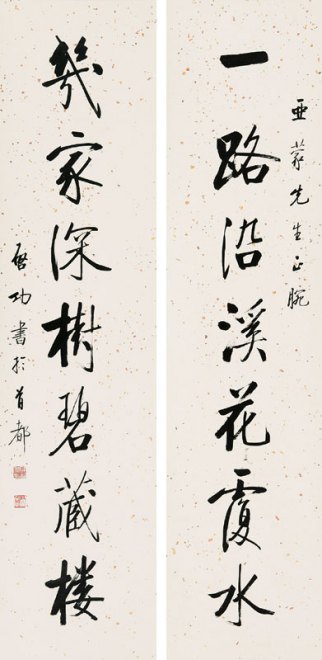 亚蒙先生正腕
一路沿溪花覆水
幾家深樹碧藏楼
啓功書於首都